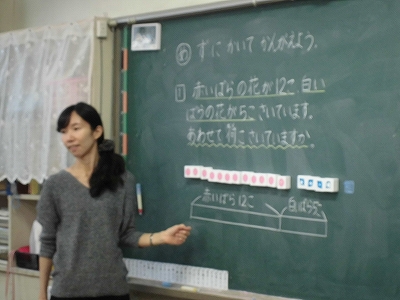 め ずにかいて かんがえよう。
1 赤いばらの花が12こ、白い
ばらの花が5こさいています。
あわせて何こさいていますか。
赤いばら12こ 白ばら5こ